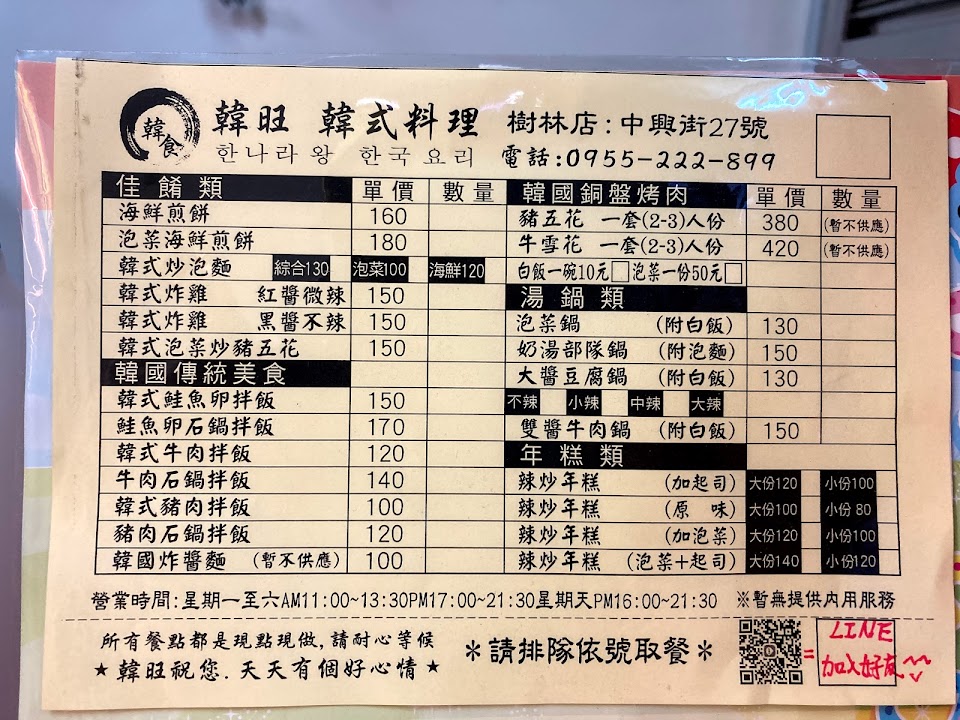 韓食
韓旺 韓式料理 樹林店:中興街27號
한나라 왕 한국요리 電話:0955-222-899
佳餚類 單價 數量
海鮮煎餅 160
泡菜海鮮煎餅 180
韓式炒泡麵 綜合130 泡菜100 海鮮120
韓式炸雞 紅醬微辣 150
韓式炸雞 黑醬不辣 150
韓式泡菜炒豬五花 150
韓國傳統美食
韓式鮭魚卵拌飯 150
鮭魚卵石鍋拌飯 170
韓式牛肉拌飯 120
牛肉石鍋拌飯 140
韓式豬肉拌飯 100
豬肉石鍋拌飯 120
韓國炸醬麵 (暫不供應) 100
韓國銅盤烤肉 單價 數量
豬五花 一套(2-3)人份 380 (暫不供應)
牛雪花 一套(2-3)人份 420 (暫不供應)
白飯一碗10元 泡菜一份50元
湯鍋類
泡菜鍋 (附白飯) 130
奶湯部隊鍋 (附泡麵) 150
大醬豆腐鍋 (附白飯) 130
不辣 小辣 中辣 大辣
雙醬牛肉鍋 (附白飯) 150
年糕類
辣炒年糕 (加起司) 大份120 小份100
辣炒年糕 (原 味) 大份100 小份 80
辣炒年糕 (加泡菜) 大份120 小份100
辣炒年糕 (泡菜+起司) 大份140 小份120
營業時間:星期一至六AM11:00~13:30PM17:00~21:30星期天PM16:00~21:30 ※暫無提供內用服務
所有餐點都是現點現做,請耐心等候
★韓旺祝您.天天有個好心情★
*請排隊依號取餐*
= LINE
加入好友